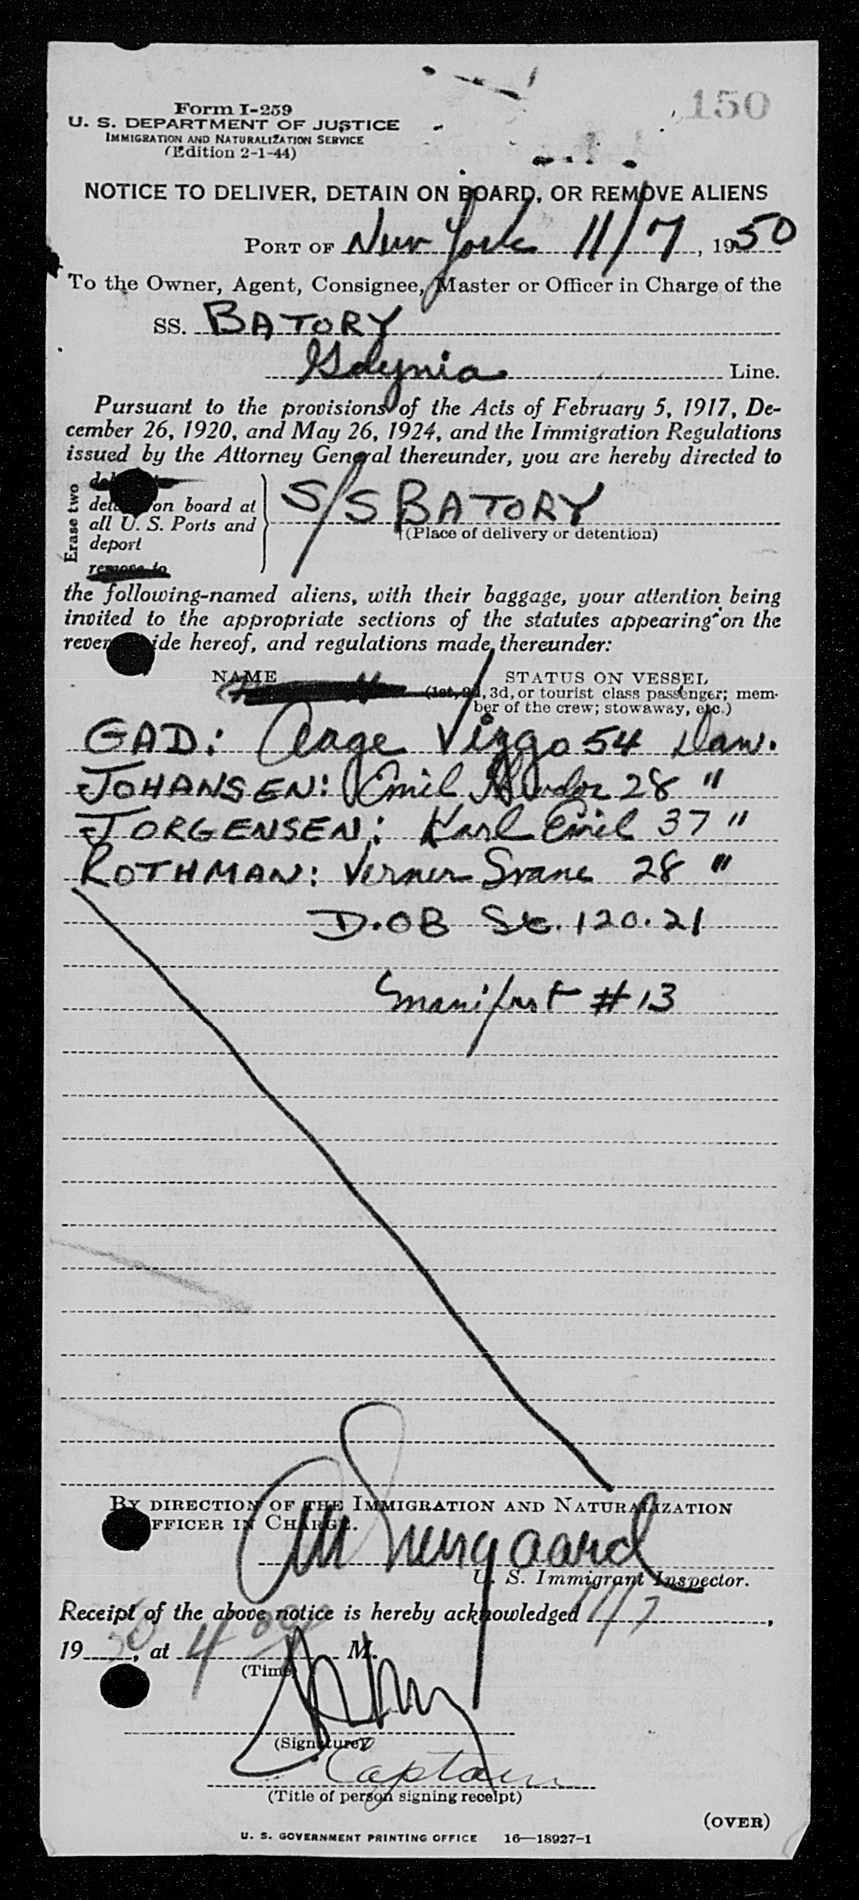 150
Form I-259
U. S. DEPARTMENT OF JUSTICE
IMMIGRATION AND NATURALIZATION SERVICE
(Edition 2-1-44)
NOTICE TO DELIVER, DETAIN ON BOARD, OR REMOVE ALIENS
PORT OF New York 11/7, 1950
To the Owner, Agent, Consignee, Master or Officer in Charge of the
SS. BATORY
Gdynia Line.
Pursuant to the provisions of the Acts of February 5, 1917, De-
cember 26, 1920, and May 26, 1924, and the Immigration Regulations
issued by the Attorney General thereunder, you are hereby directed to
Erase two
on board at
all U. S. Ports and
deport
remove to
S/S BATORY
(Place of delivery or detention)
the following-named aliens, with their baggage, your attention being
invited to the appropriate sections of the statutes appearing on the
side hereof, and regulations made thereunder:
NAME STATUS ON VESSEL
(1st, 2d, 3d, or tourist class passenger; mem-
ber of the crew; stowaway, etc.)
GAD: Aage Viggo 54 Dan.
JOHANSEN: Emil 28 "
JORGENSEN: Karl Emil 37 "
ROTHMAN: Verner Svane 28 "
D.OB Se. 120.21
Manifest # 13
BY DIRECTION OF THE IMMIGRATION AND NATURALIZATION
OFFICER IN CHARGE.
U. S. Immigrant Inspector.
Receipt of the above notice is hereby acknowledged 11/7,
1950, at 4 M.
(Time)
(Signature)
Captain
(Title of person signing receipt)
(OVER)
U. S. GOVERNMENT PRINTING OFFICE 16—18927-1